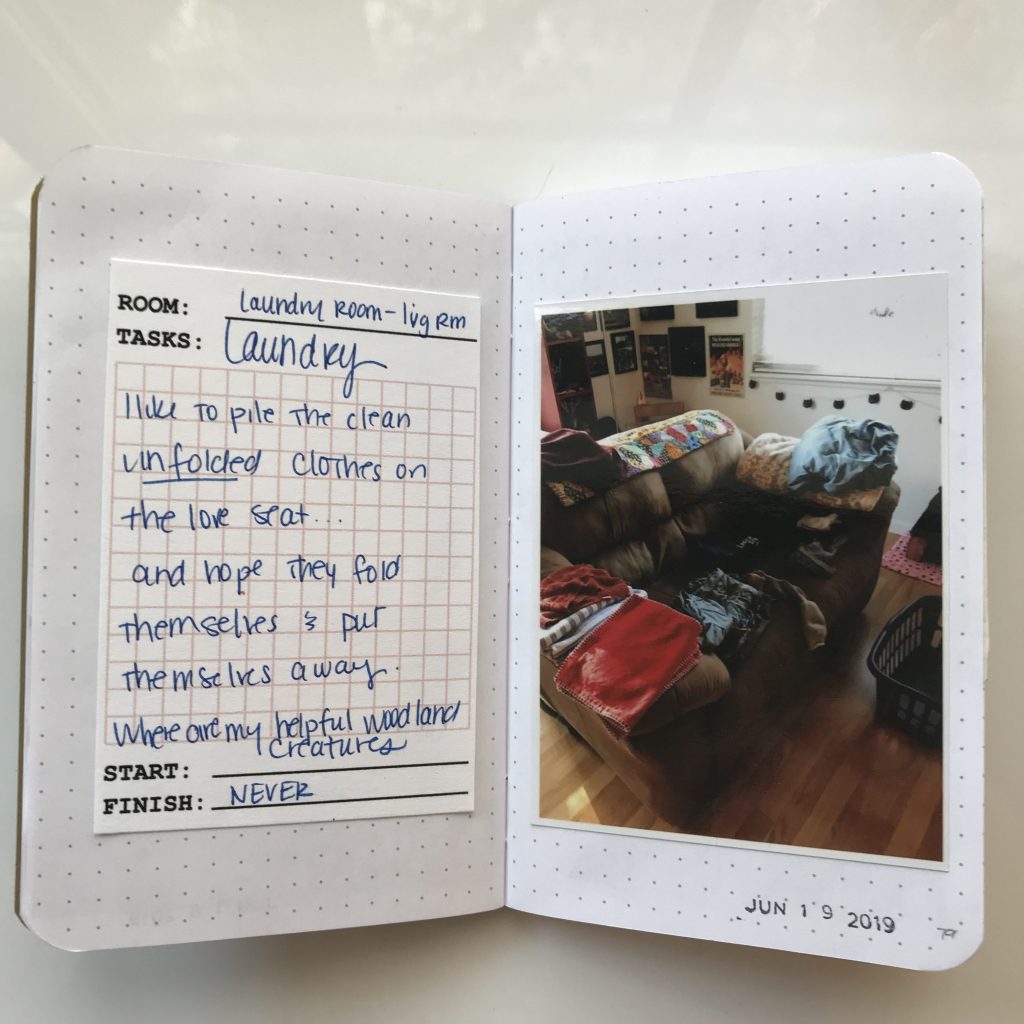 ROOM: Laundry Room - livg Rm
TASKS: Laundry
I like to pile the clean
unfolded clothes on
the love seat...
and hope they fold
themselves & put
themselves away.
Where are my helpful woodland
creatures
START:
FINISH: NEVER
JUN 19 2019